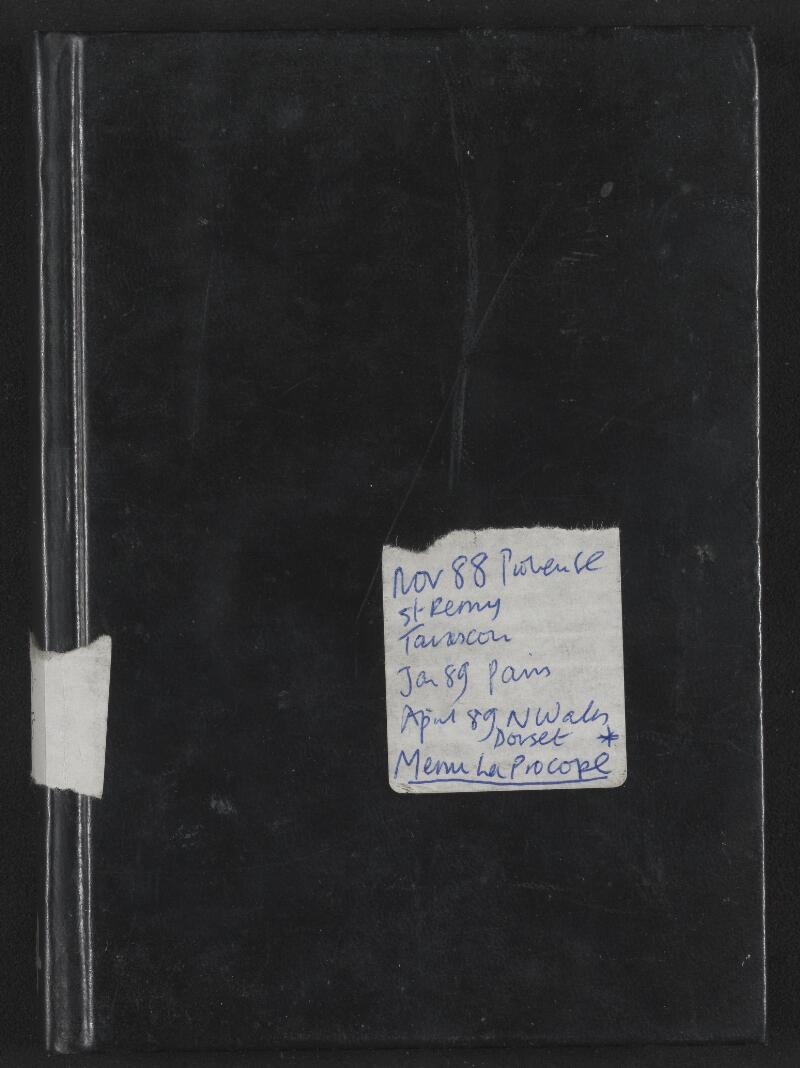 Nov 88 Provence
St Remy
Tarascon
Jan 89 Paris
April 89 N Wales
Dorset *
Menu La Procope